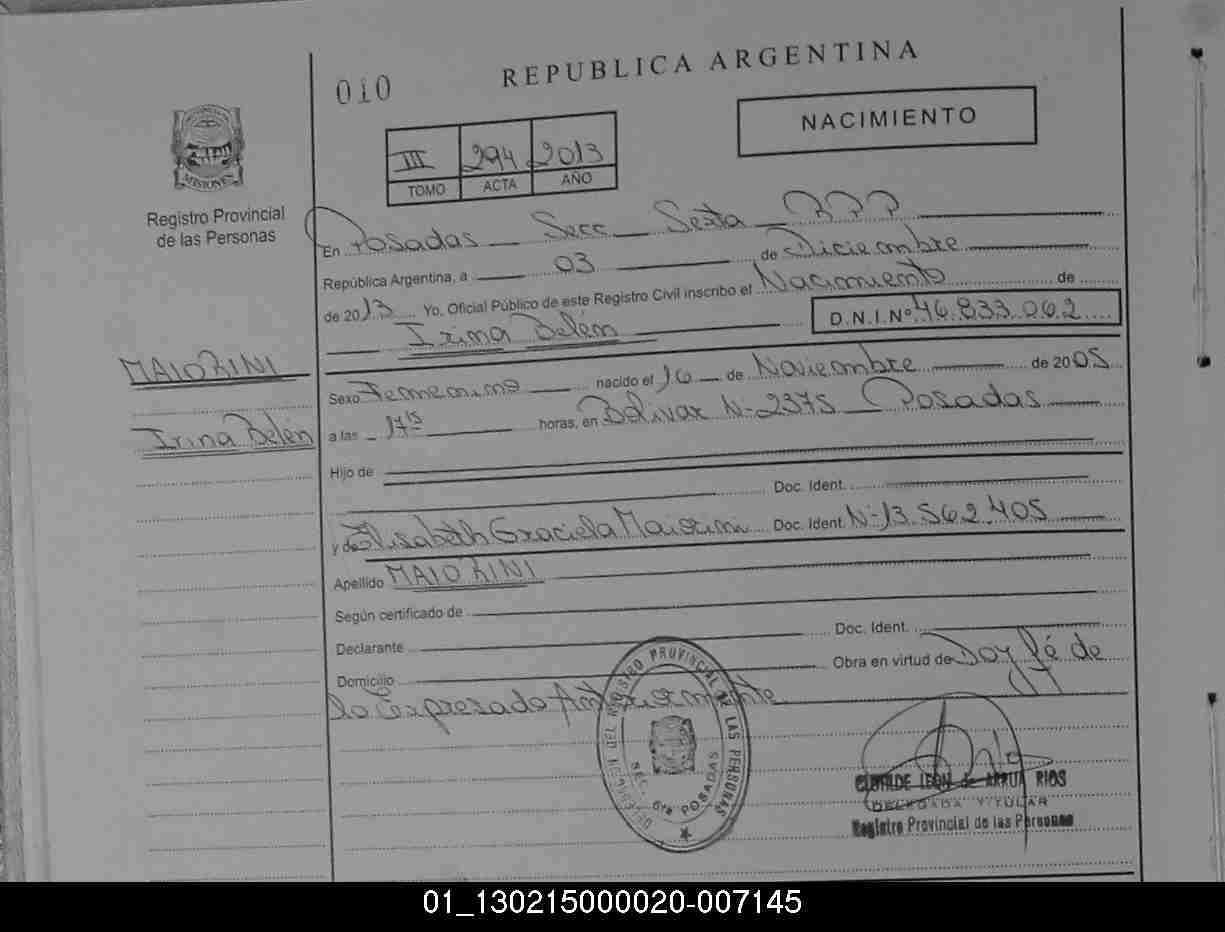 010
REPUBLICA ARGENTINA
NACIMIENTO
III 294 2013
TOMO ACTA AÑO
MISIONES
Registro Provincial
de las Personas
En Posadas Secc Sexta
República Argentina, a 03 de Diciembre
de 2013 Yo. Oficial Público de este Registro Civil inscribo el Nacimiento de
Irina Belén D.N.I.Nº 46.833.062
MAIORINI
Irina Belén
Sexo Femenino nacido el 16 de Noviembre de 2005
a las 17 15 horas, en Bolivar N- 2375 Posadas
Hijo de
Doc. Ident.
y de Elisabeth Graciela Maiorini Doc. Ident. N-13.562.405
Apellido MAIORINI
Según certificado de
Declarante Doc. Ident.
Domicilio Obra en virtud de Doy fé de
lo Expresado Anteriormente
REGISTRO PROVINCIAL DE LAS PERSONAS
SEC. 6ta POSADAS
CLOTILDE LEON de ARRUA RIOS
DELEGADA TITULAR
Registro Provincial de las Personas
01_130215000020-007145